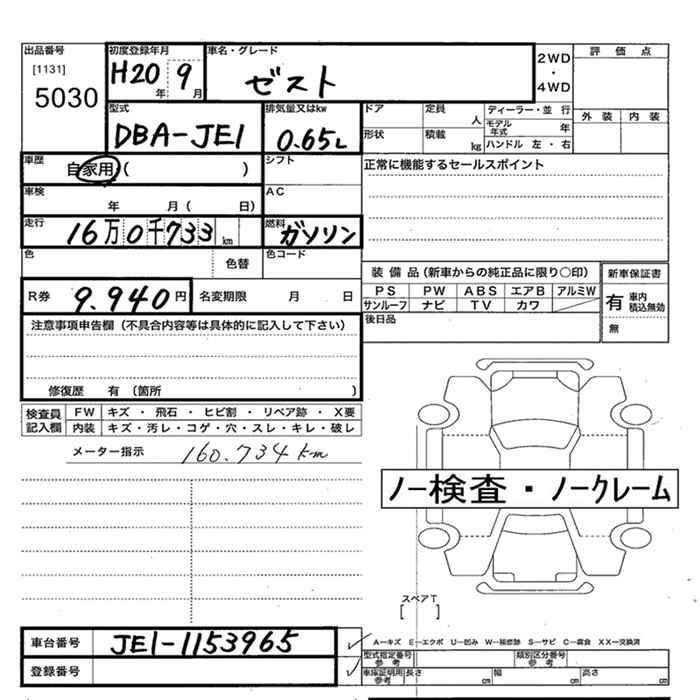 出品番号 初度登録年月 車名・グレード 2WD ・ 4WD 評価点
[1131] H20年 9月 ゼスト
5030
型式 排気量又はkw ドア 定員 人 ディーラー・並行 外装 内装
DBA-JE1 0.65L 形状 積載 kg モデル年式 年
ハンドル 左・右
車歴 自家用 ( ) シフト 正常に機能するセールスポイント
車検 年 月 ( 日) AC
走行 16万0千733 km 燃料 ガソリン
色 色替 色コード
装備品(新車からの純正品に限り○印) 新車保証書
R券 9.940円 名変期限 月 日 PS PW ABS エアB アルミW 有 車内 積込無効
サンルーフ ナビ TV カワ
注意事項申告欄(不具合内容等は具体的に記入して下さい) 後日品 無
修復歴 有 (箇所 )
検査員記入欄 FW キズ・飛石・ヒビ割・リペア跡・X要
内装 キズ・汚レ・コゲ・穴・スレ・キレ・破レ
メーター指示 160.734km
ノー検査・ノークレーム
スペアT
[ ]
車台番号 JE1-1153965 A―キズ E―エクボ U―凹み W―補修跡 S―サビ C―腐食 XX―交換済
型式指定番号 参考 類別区分番号 参考
登録番号 車庫証明用 参考 長さ cm 幅 cm 高さ cm